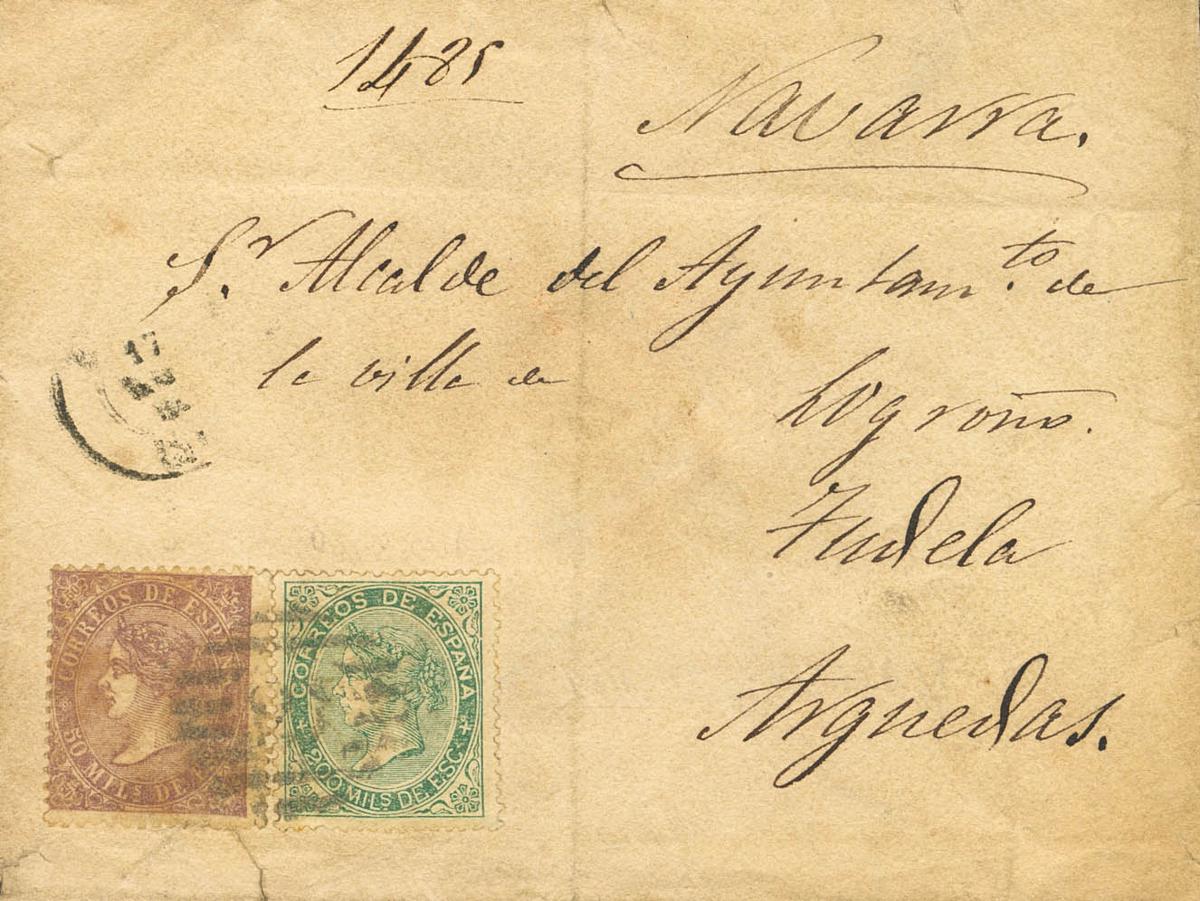 1485
Navarra.
S.r Alcalde del Ayuntam.to de
la villa de
Logroño.
Tudela
Arguedas.
17
CORREOS DE ESPA
50 MILS DE
CORREOS DE ESPAÑA
200 MILS DE ESC.